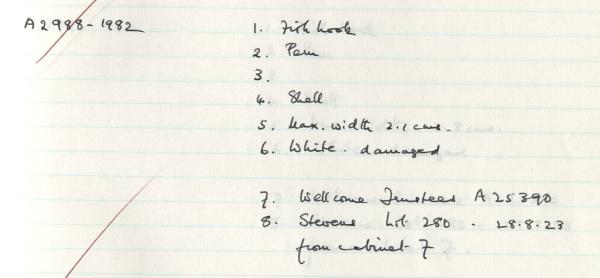 A2988-1982 1. Fish hook
2. Peru
3.
4. Shell
5. Max. width 2.1 cms.
6. White. damaged
7. Wellcome Trustees A 25390
8. Stevens Lot. 280 - 28.8.23
from cabinet 7.